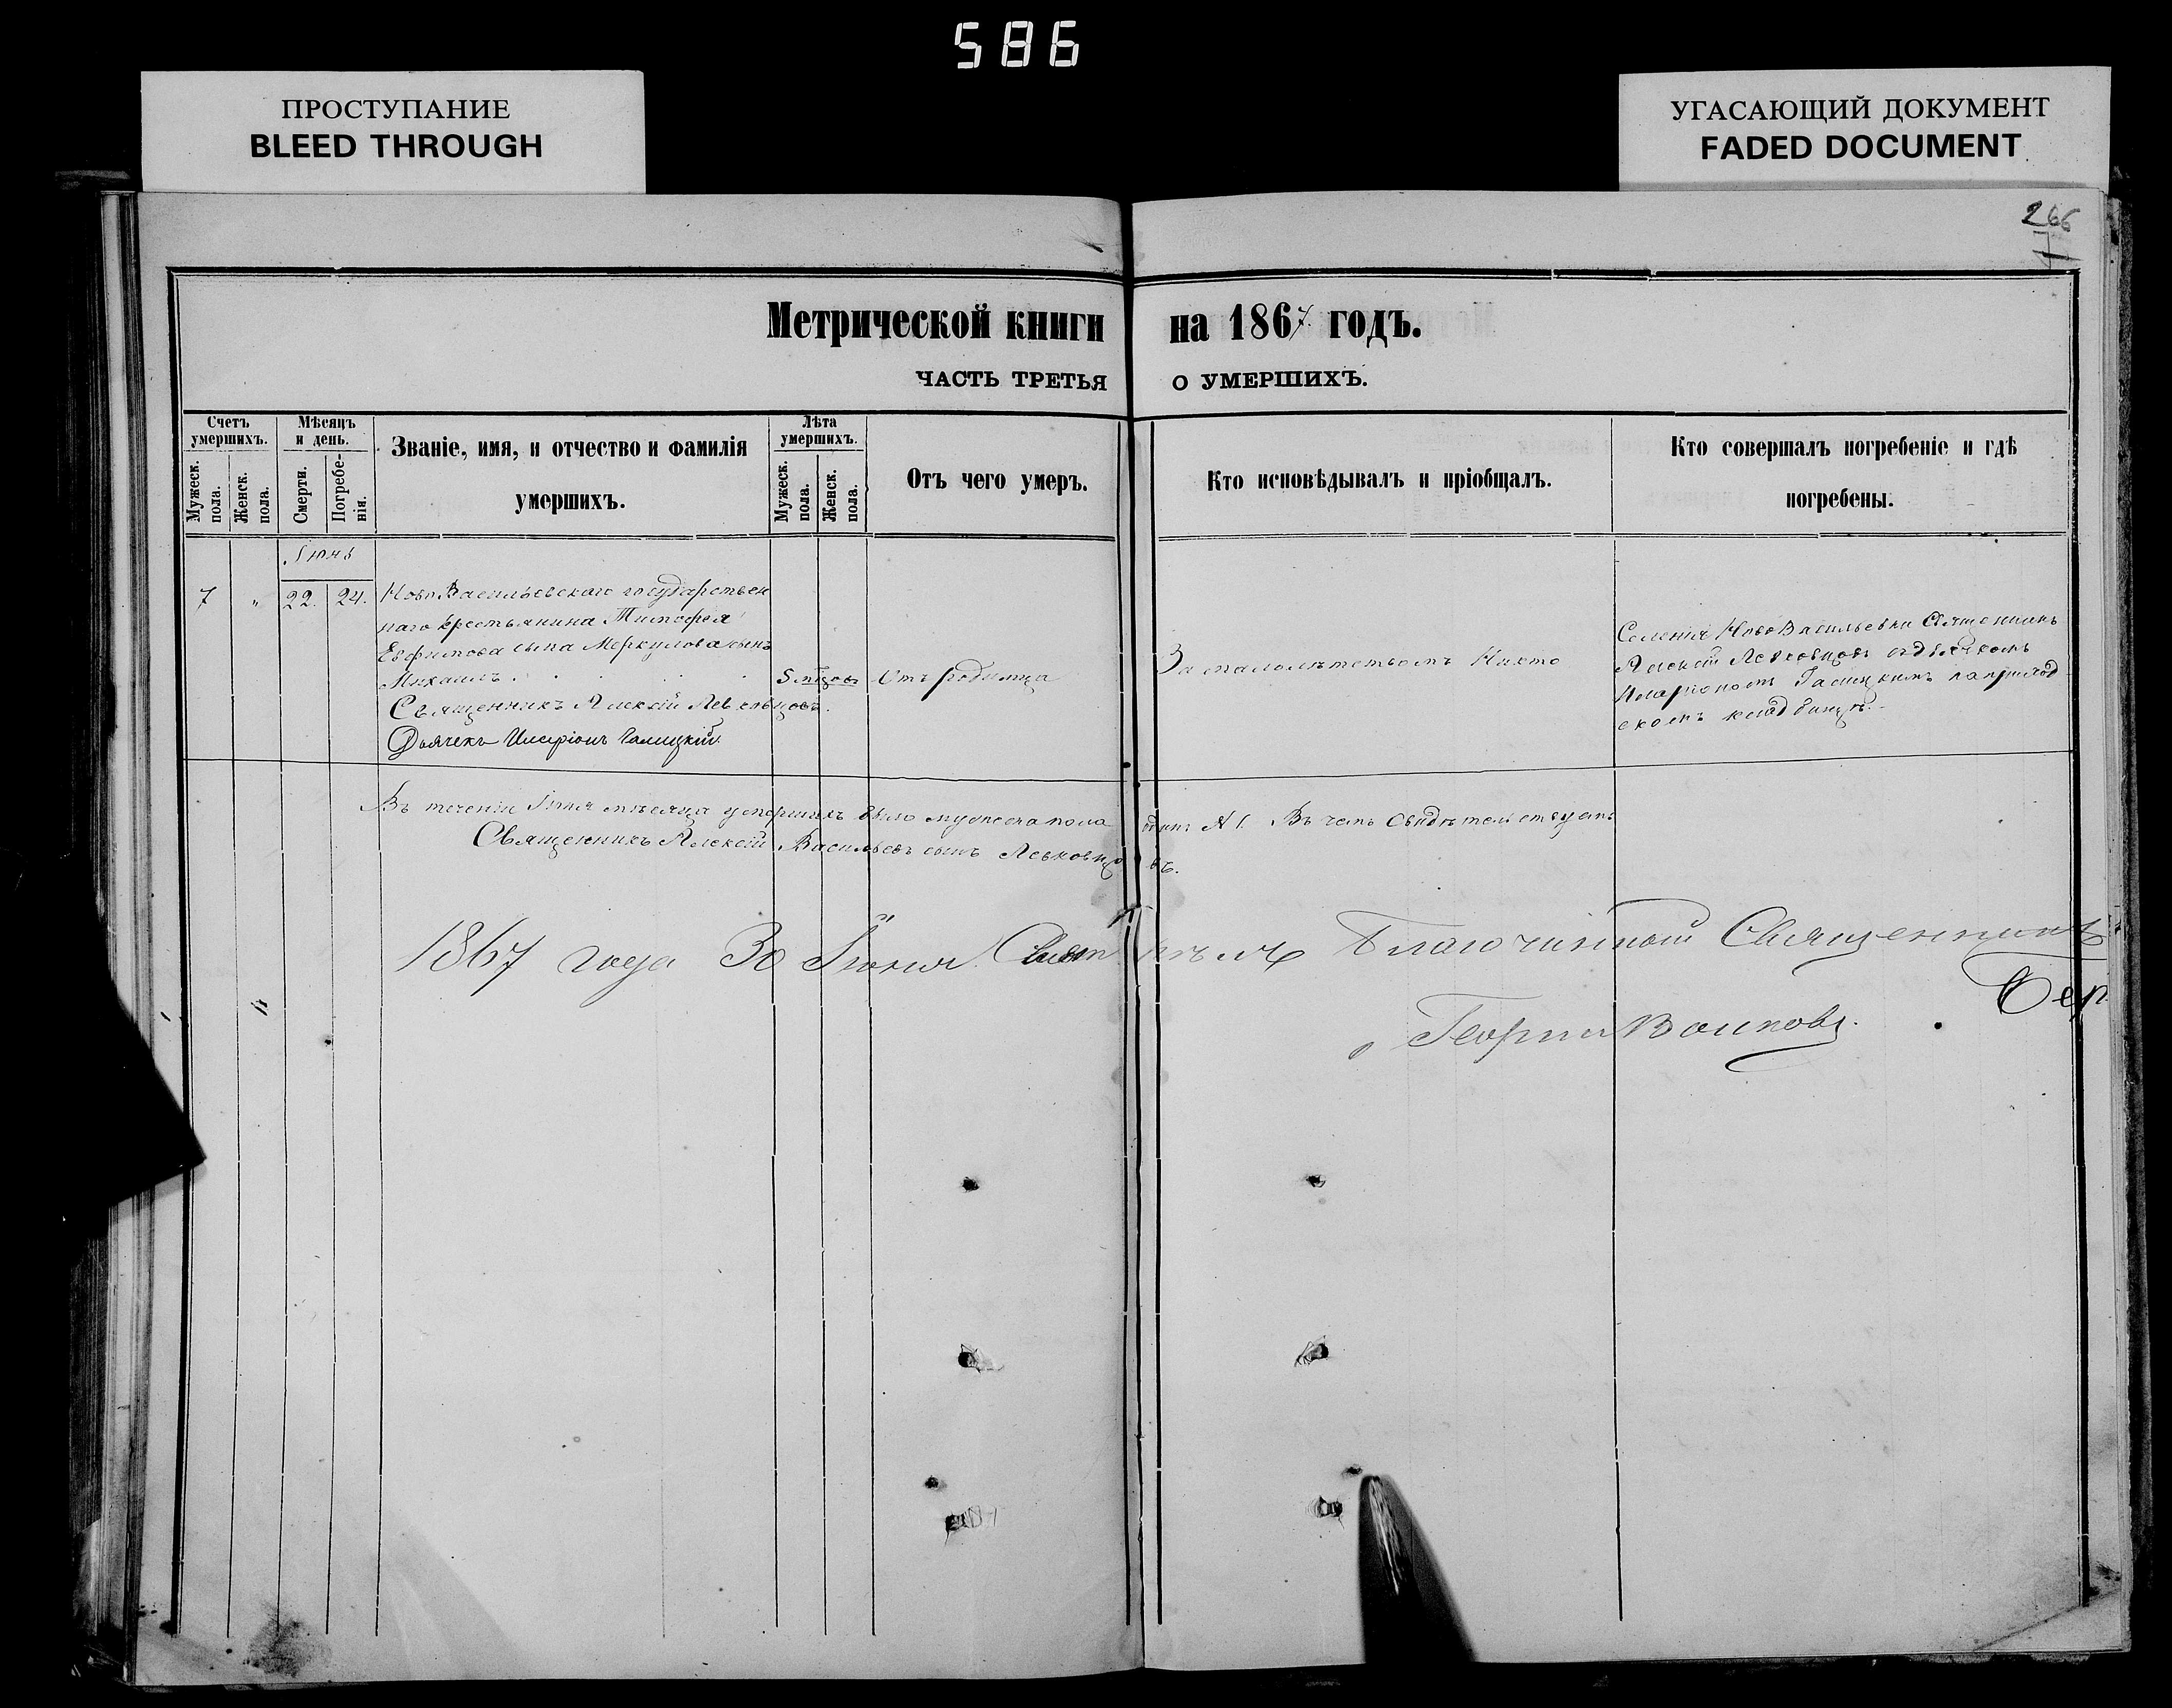 586
ПРОСТУПАНИЕ
BLEED THROUGH
УГАСАЮЩИЙ ДОКУМЕНТ
FADED DOCUMENT
266
Метрической книги на 1867 годъ.
ЧАСТЬ ТРЕТЬЯ О УМЕРШИХЪ.
Счетъ умершихъ.
Мужеск. пола.
Женск. пола.
Мѣсяцъ и день.
Смерти.
Погребе-нія.
Званіе, имя, и отчество и фамилія
умершихъ.
Лѣта умершихъ.
Мужеск. пола.
Женск. пола.
Отъ чего умеръ.
Кто исповѣдывалъ и пріобщалъ.
Кто совершалъ погребеніе и гдѣ
погребены.
Іюнь
7 " 22. 24.
НовоВасильевскаго государствен
наго крестьянина Тимофея
Евфимова сына Меркулова сынъ
Михаилъ
Священникъ Алексій Левковцовъ.
Дьячекъ Иларіонъ Галицкій.
5 мѣсцовъ
Отъ родимца
За малолѣтствомъ Никто
Селенія НовоВасильевки Священникъ
Алексій Левковцовъ съ дьячкомъ
Иларіономъ Галицкимъ на приход
скомъ кладбищѣ.
Въ теченіи Іюня мѣсяца умершихъ было мужеска пола одинъ № 1. Въ чемъ свидѣтельствуетъ
Священникъ Алексій Васильевъ сынъ Левковцовъ.
1867 года 30 Іюня Благочинный Священникъ
Георгій